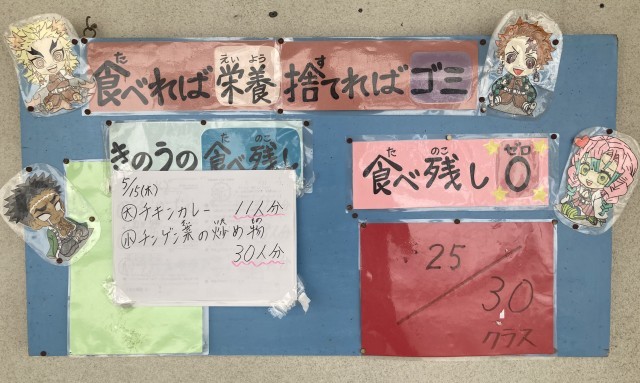 た えい よう す
食べれば栄養 捨てればゴミ
た のこ
きのうの食べ残し
5/15(木)
大 チキンカレー 11人分
小 チンゲン菜の炒め物
30人分
た のこ ゼロ
食べ残し0
25/30
クラス